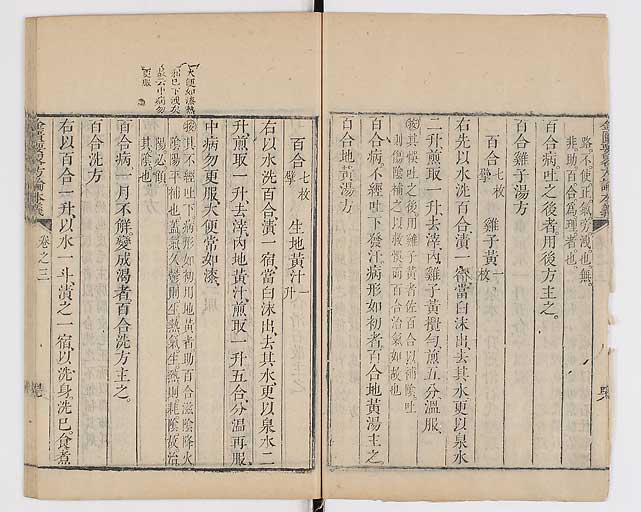 路不使正氣旁洩也無
非助百合為理者也
百合病吐之後者用後方主之
百合雞子黃湯方
百合七枚擘 雞子黃一枚
右先以水洗百合漬一宿當白沫出去其水更以泉水
二升煎取一升去滓內雞子黃攪勻煎五分溫服
百合病不經吐下發汗病形如初者百合地黃湯主之
百合地黃湯方
百合七枚擘 生地黃汁一升
右以水洗百合漬一宿當白沫出去其水更以泉水二
升煎取一升去滓內地黃汁煎取一升五合分溫再服
中病勿更服大便常如漆
其不經吐下病形如初用地黃者助百合滋陰降火
陰陽平補也蓋氣久鬱則生熱氣生熱則耗陰故治
陽必顧
其陰也
百合病一月不解變成渴者百合洗方主之。
百合洗方
右以百合一升以水一斗漬之一宿以洗身洗已食煮
卷之三